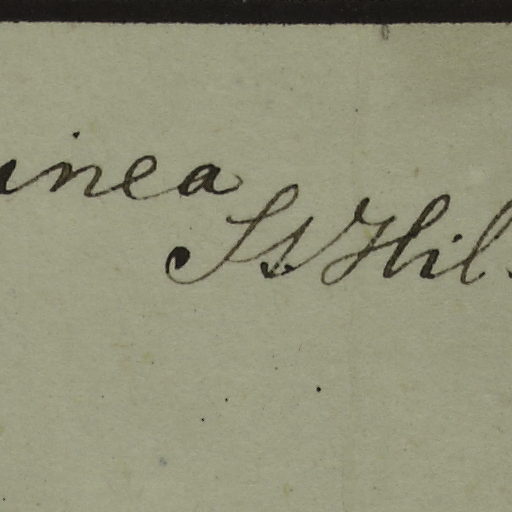 inea
St Hil.